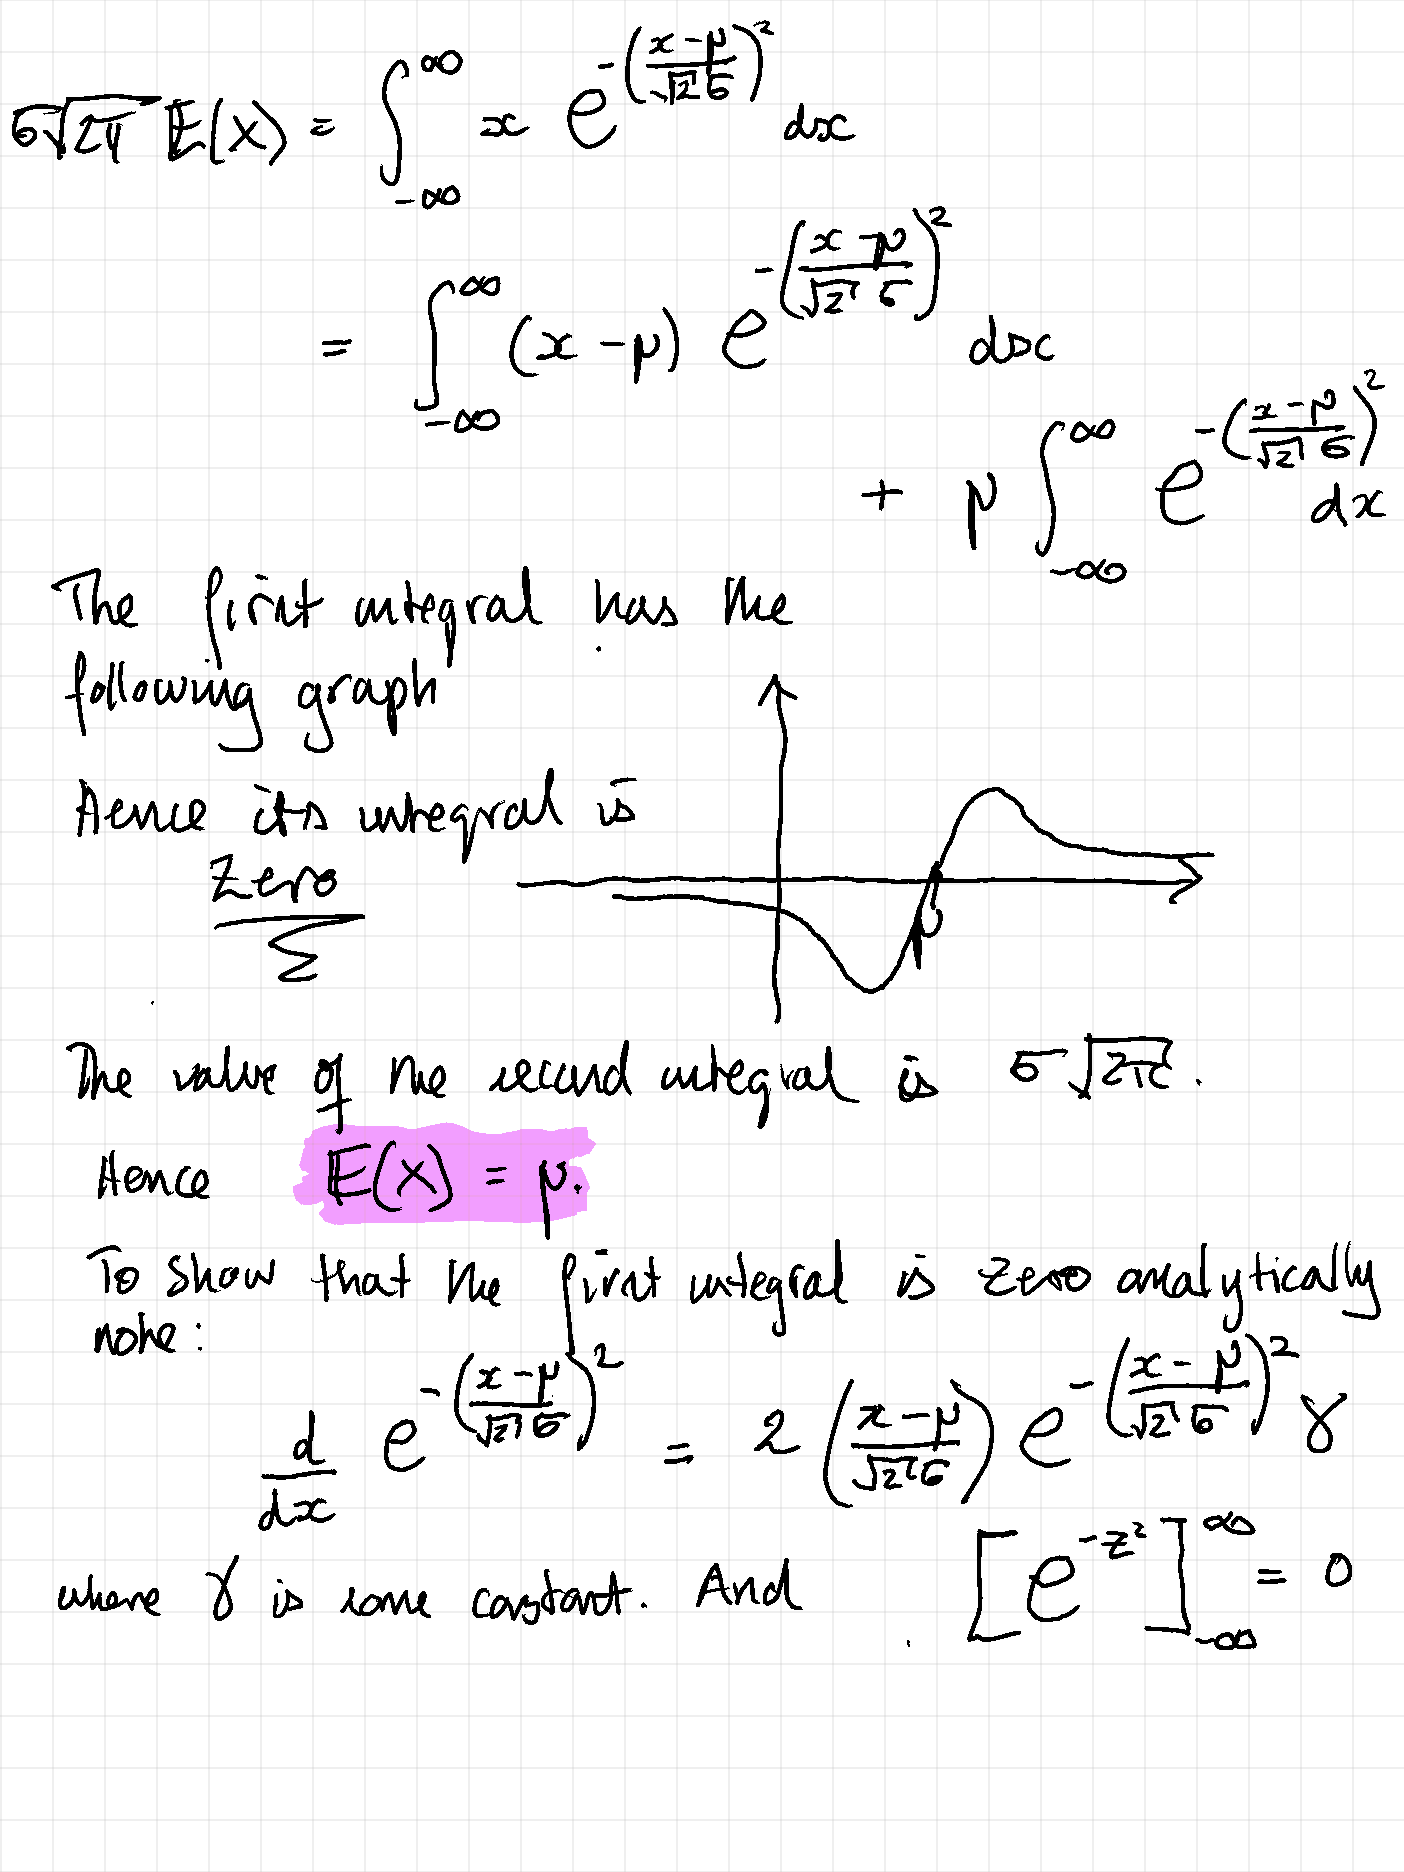 σ√2π E(X) = ∫_{-∞}^{∞} x e^{-((x-μ)/(√2 σ))^2} dx
= ∫_{-∞}^{∞} (x-μ) e^{-((x-μ)/(√2 σ))^2} dx
+ μ ∫_{-∞}^{∞} e^{-((x-μ)/(√2 σ))^2} dx
The first integral has the
following graph
Hence its integral is
zero
μ
The value of the second integral is σ√2π.
Hence E(X) = μ.
To show that the first integral is zero analytically
note:
d/dx e^{-((x-μ)/(√2 σ))^2} = 2 ((x-μ)/(√2 σ)) e^{-((x-μ)/(√2 σ))^2} γ
where γ is some constant. And [e^{-z^2}]_{-∞}^{∞} = 0